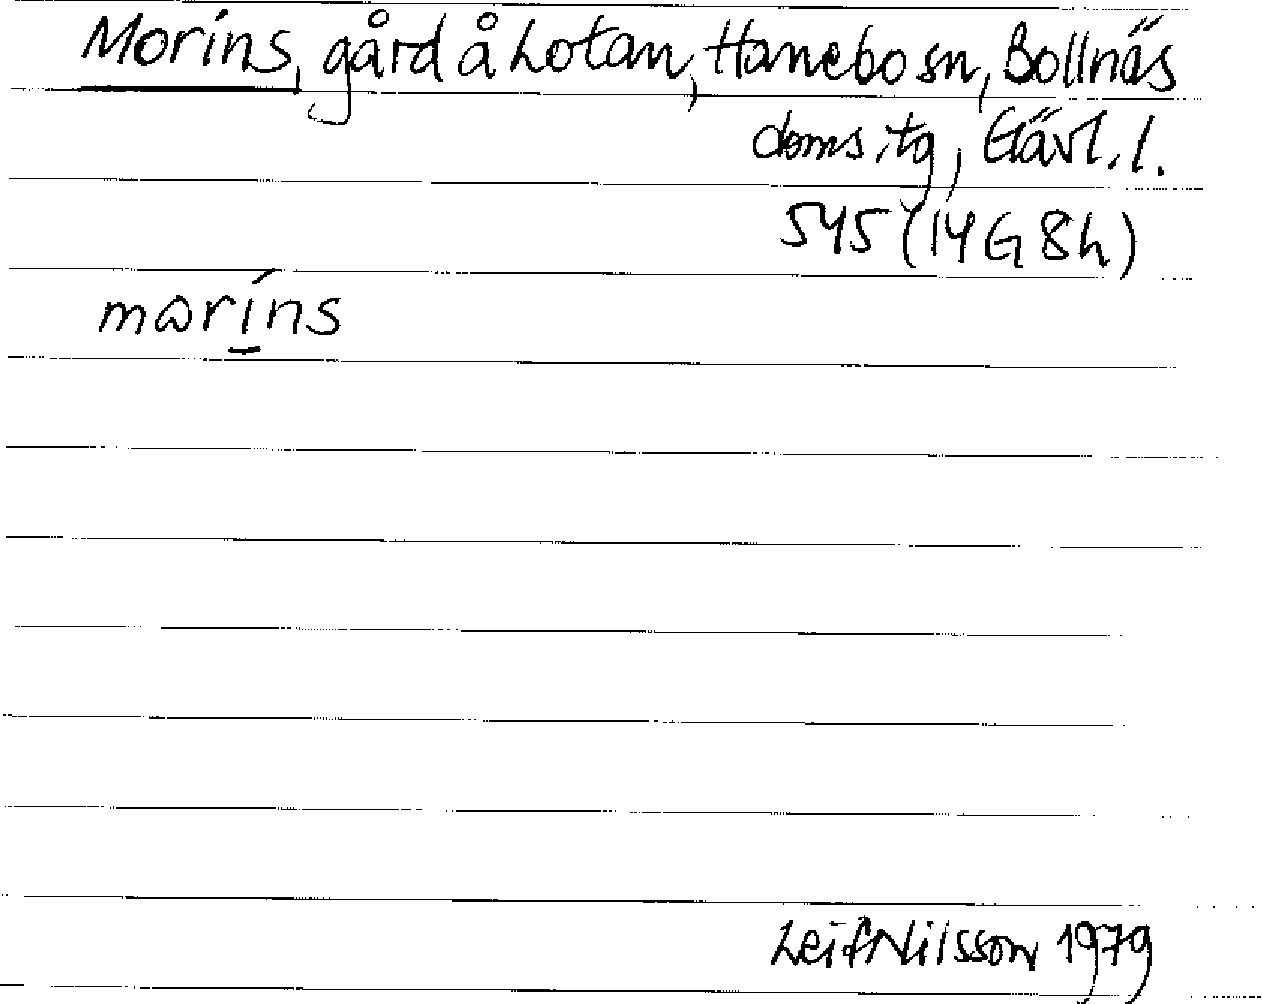 Morins, gård å Lotan, Hanebo sn, Bollnäs
doms.tg, Gävl. l.
545 (14G 8h)
mɷrins
Leif Nilsson 1979